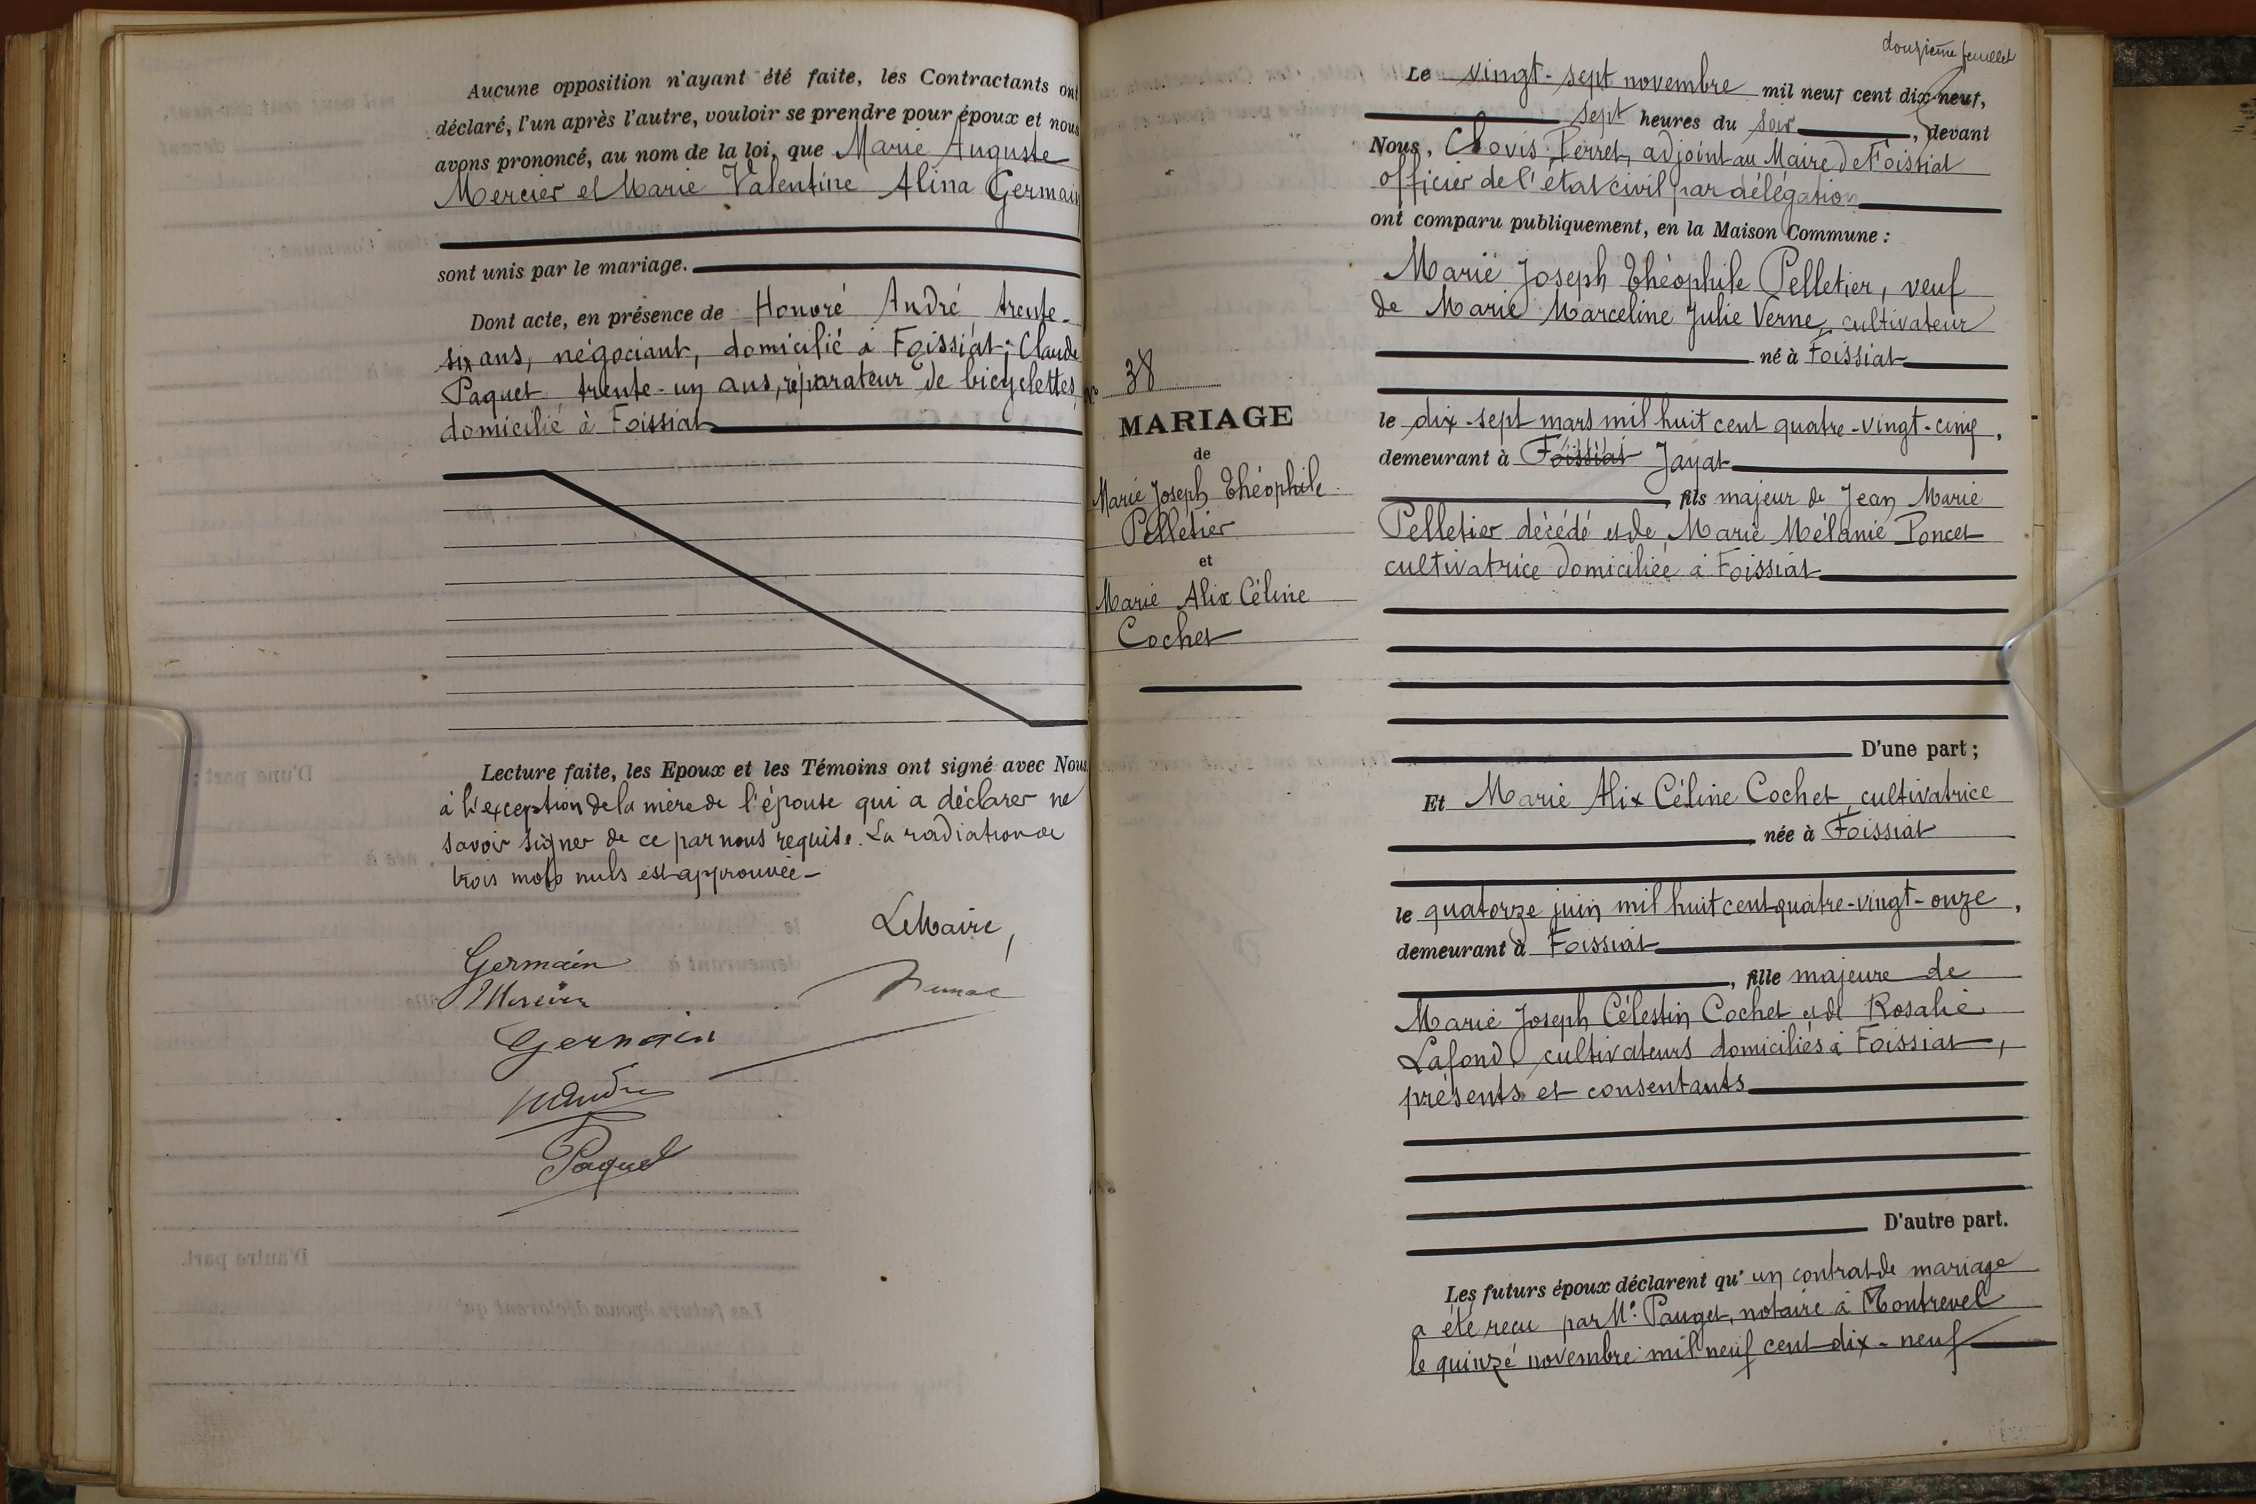 Aucune opposition n'ayant été faite, les Contractants ont
déclaré, l'un après l'autre, vouloir se prendre pour époux et nous
avons prononcé, au nom de la loi, que Marie Auguste
Mercier et Marie Valentine Alina Germain
sont unis par le mariage.
Dont acte, en présence de Honoré André trente-
six ans, négociant, domicilié à Foissiat; Claude
Paquet trente-un ans, réparateur de bicyclettes,
domicilié à Foissiat
Lecture faite, les Epoux et les Témoins ont signé avec Nous
à l'exception de la mère de l'épouse qui a déclarer ne
savoir signer de ce par nous requise. La radiation de
trois mots nuls est approuvée-
Le Maire,
Germain
Mercier
Germain
Paquet
douzième feuillet
Le vingt-sept novembre mil neuf cent dix-neuf,
sept heures du soir, devant
Nous, Clovis Perret, adjoint au Maire de Foissiat
officier de l'état civil par délégation
ont comparu publiquement, en la Maison Commune :
Marie Joseph Théophile Pelletier, veuf
de Marie Marceline Julie Verne, cultivateur
né à Foissiat
le dix-sept mars mil huit cent quatre-vingt-cinq,
demeurant à Foissiat Jayat
, fils majeur de Jean Marie
Pelletier décédé et de Marie Mélanie Poncet
cultivatrice domiciliée à Foissiat
D'une part ;
Et Marie Alix Céline Cochet, cultivatrice
, née à Foissiat
le quatorze juin mil huit cent quatre-vingt-onze,
demeurant à Foissiat
, fille majeure de
Marie Joseph Célestin Cochet et de Rosalie
Lafond, cultivateurs domiciliés à Foissiat,
présents et consentants
D'autre part.
Les futurs époux déclarent qu' un contrat de mariage
a été reçu par Me. Pauget, notaire à Montrevel
le quinze novembre mil neuf cent dix-neuf
No 38
MARIAGE
de
Marie Joseph Théophile
Pelletier
et
Marie Alix Céline
Cochet